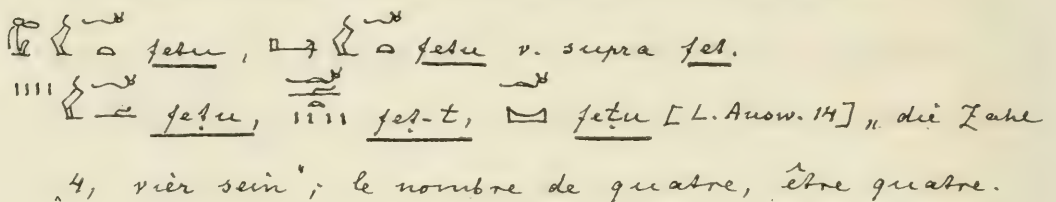 fetu, fetu v. supra fet.
feṭu, feṭ-t, feṭu [L. Ausw. 14] „die Zahl
4, vier sein“; le nombre de quatre, être quatre.